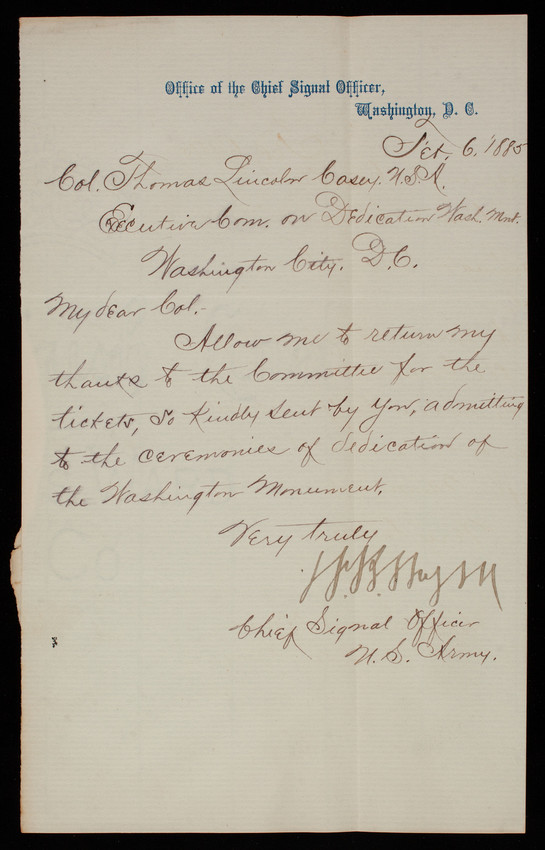 Office of the Chief Signal Officer,
Washington, D. C.
Feb. 6. 1885
Col. Thomas Lincoln Casey. U.S.A.
Executive Com. on Dedication Wash. Mnt.
Washington City. D.C.
My dear Col.-
Allow me to return my
thanks to the Committee for the
tickets, so kindly sent by you, admitting
to the ceremonies of dedication of
the Washington Monument.
Very truly
Chief Signal Officer
U. S. Army.